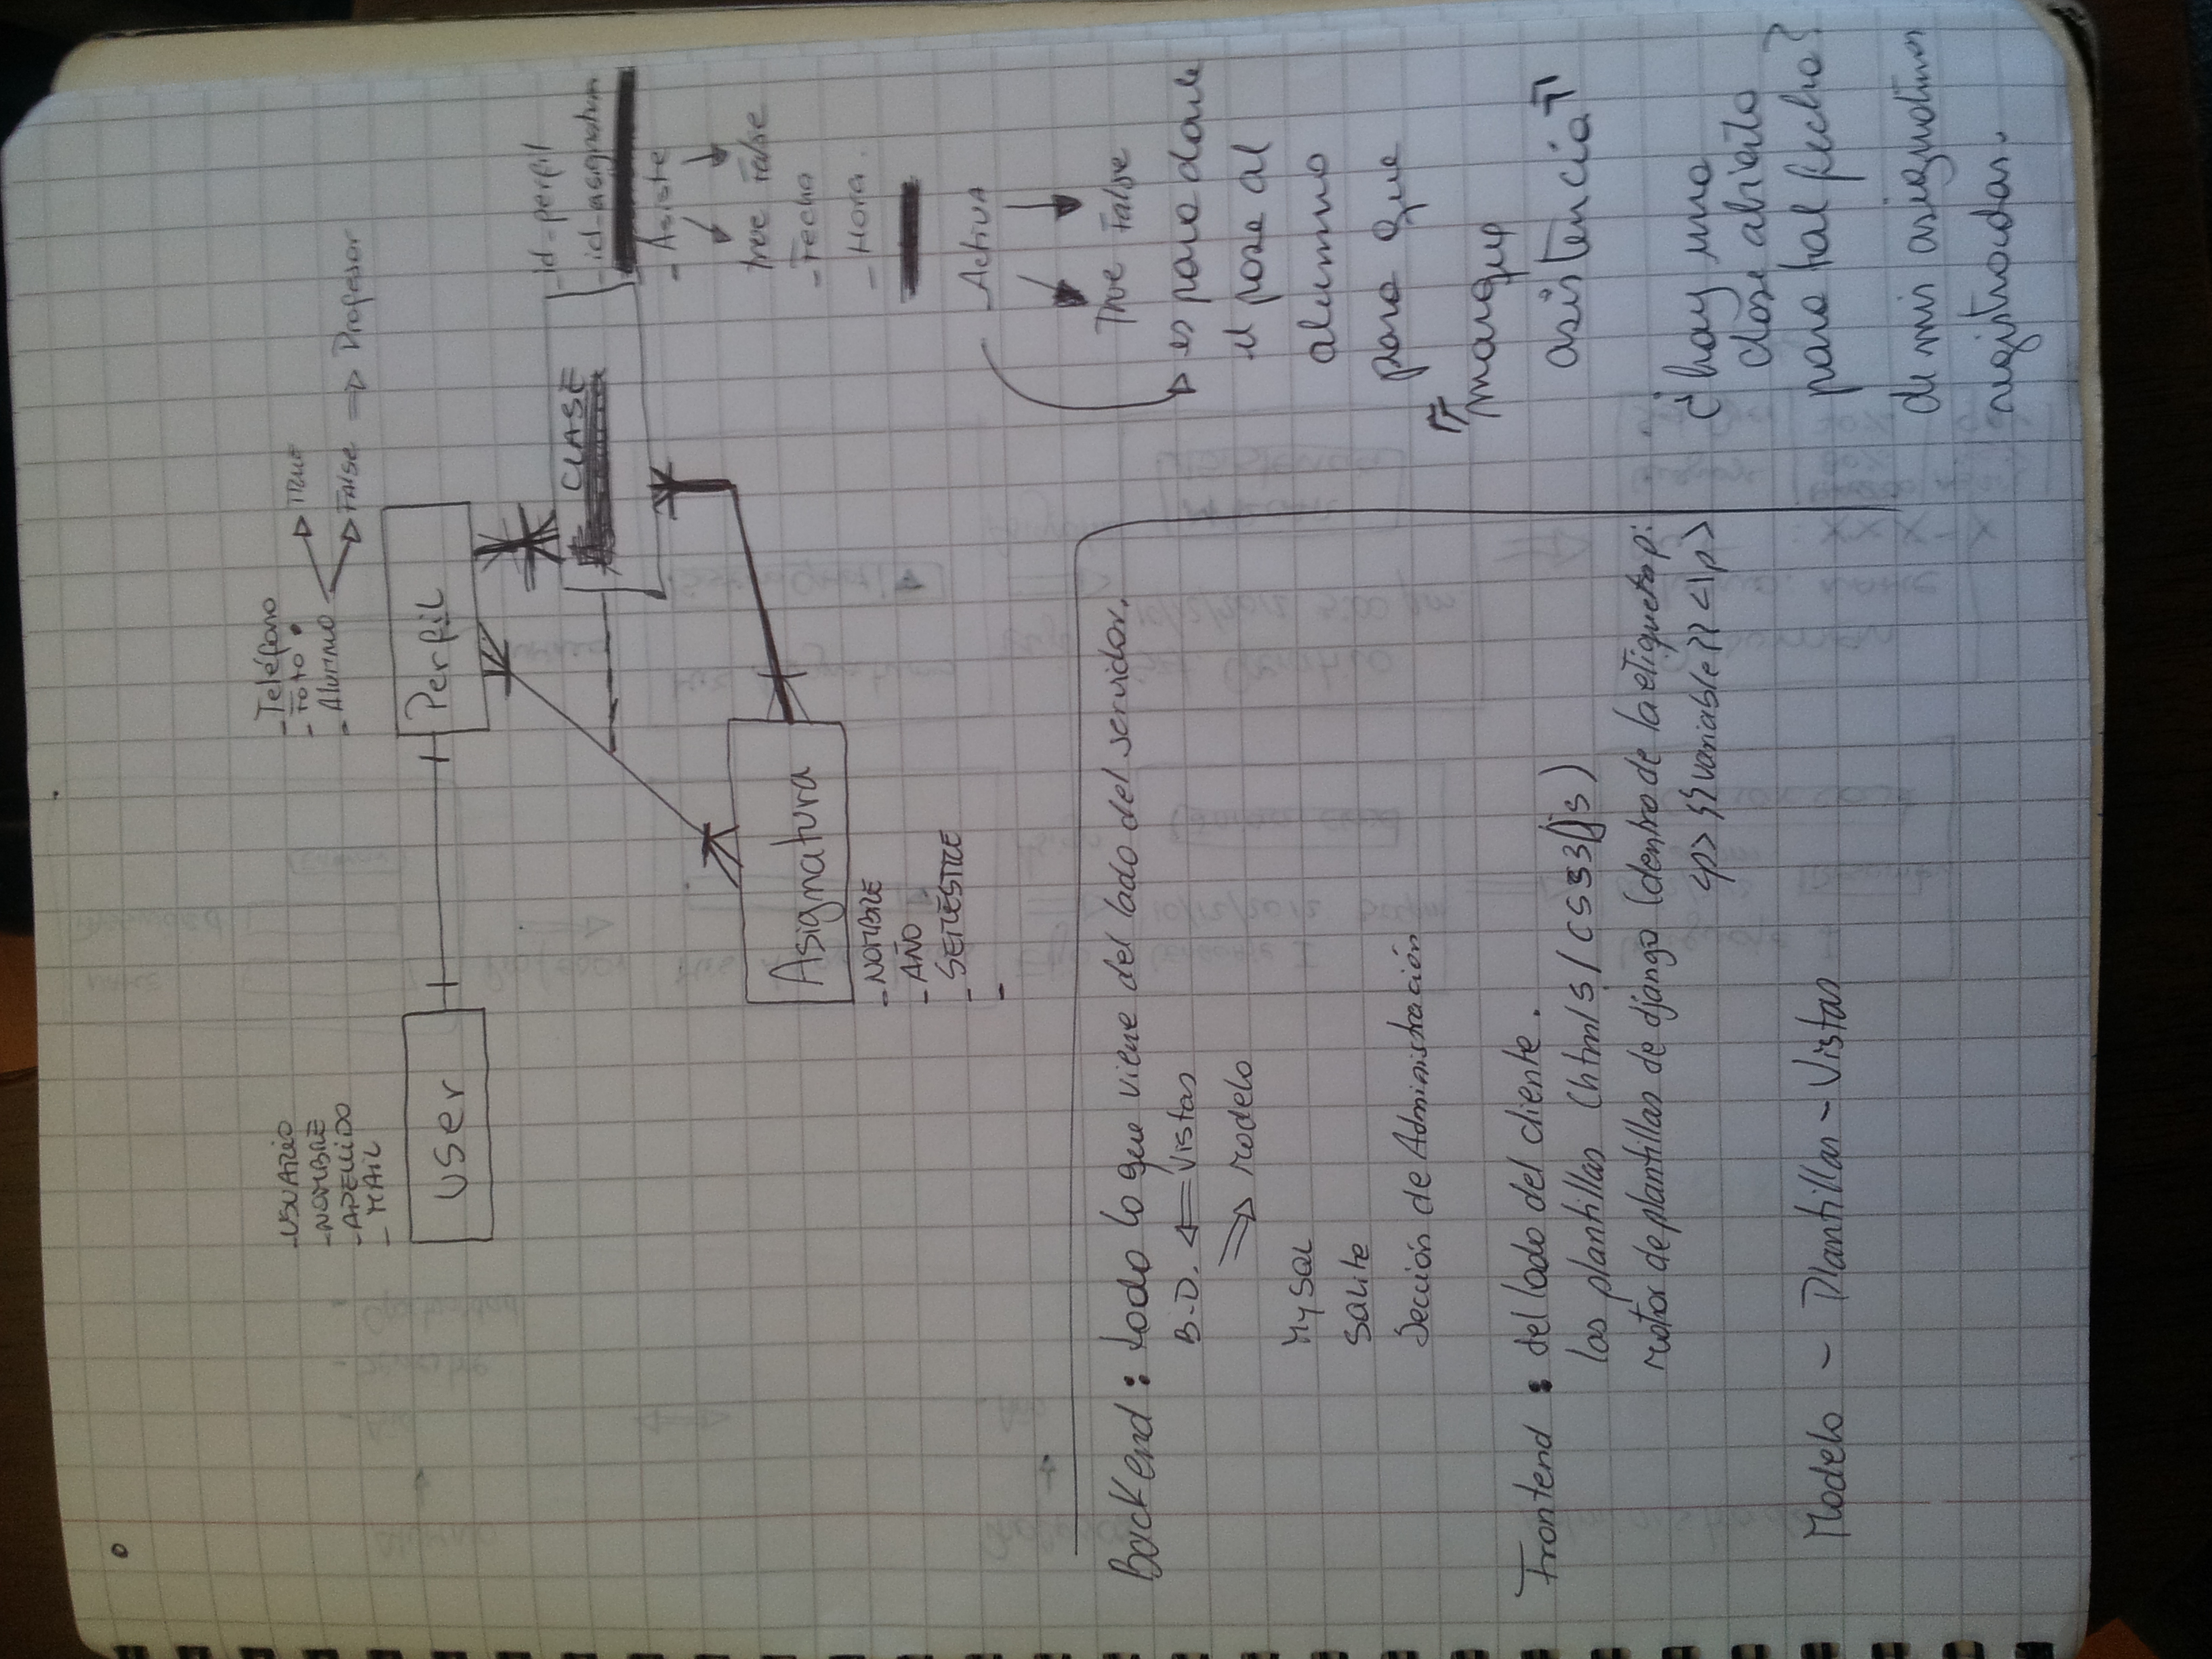 -USUARIO
-NOMBRE
-APELLIDO
- MAIL
User
-Teléfono
-Foto
-Alumno
TRUE
False => Profesor
Perfil
CLASE
-id-perfil
-id-asignatura
- Asiste
true False
-Fecha
- Hora
-Activa
True False
es para darle
el pase al
alumno
para que
"marque
asistencia"
¿hay una
clase abierta
para tal fecha?
de mis asignaturas
registradas.
Asignatura
-NOMBRE
-AÑO
-SEMESTRE
-
Backend: todo lo que viene del lado del servidor.
B.D. <= Vistas
=> Modelo
MySQL
SQLite
Sección de Administración
Frontend: del lado del cliente.
las plantillas (html5/css3/js)
Motor de plantillas de django (dentro de la etiqueta p:
<p> {{variable}} </p>
Modelo - Plantillas - Vistas